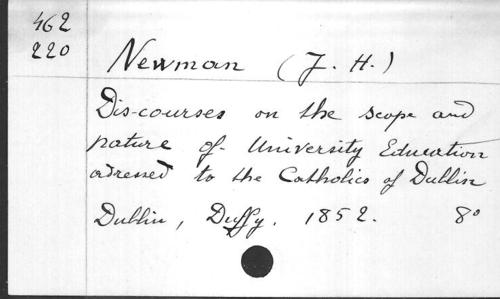 462
220
Newman (J. H.)
Discourses on the scope and
nature of University Education
adressed to the Catholics of Dublin
Dublin, Duffy. 1852. 8°